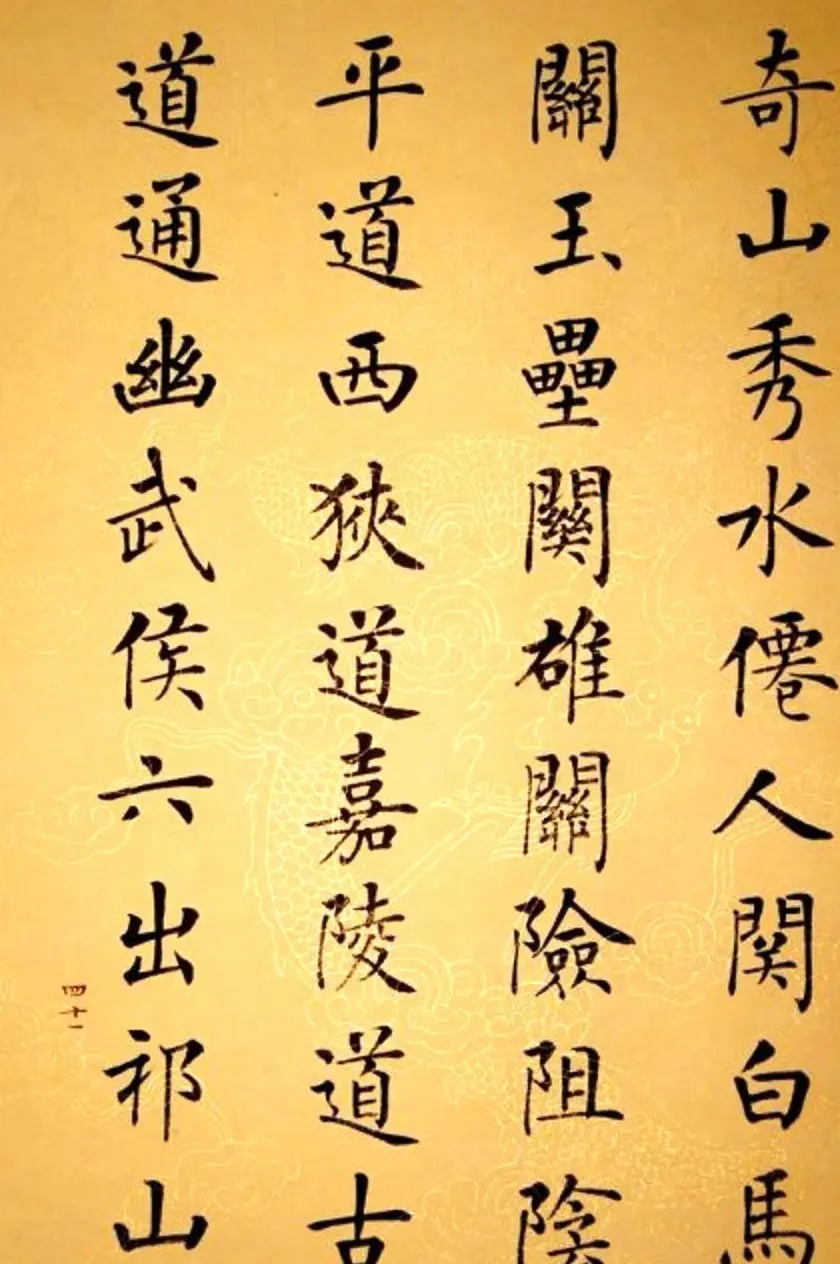 奇山秀水僊人関白馬
關玉壘關雄關險阻陰
平道西狹道嘉陵道古
道通幽武侯六出祁山
四十一